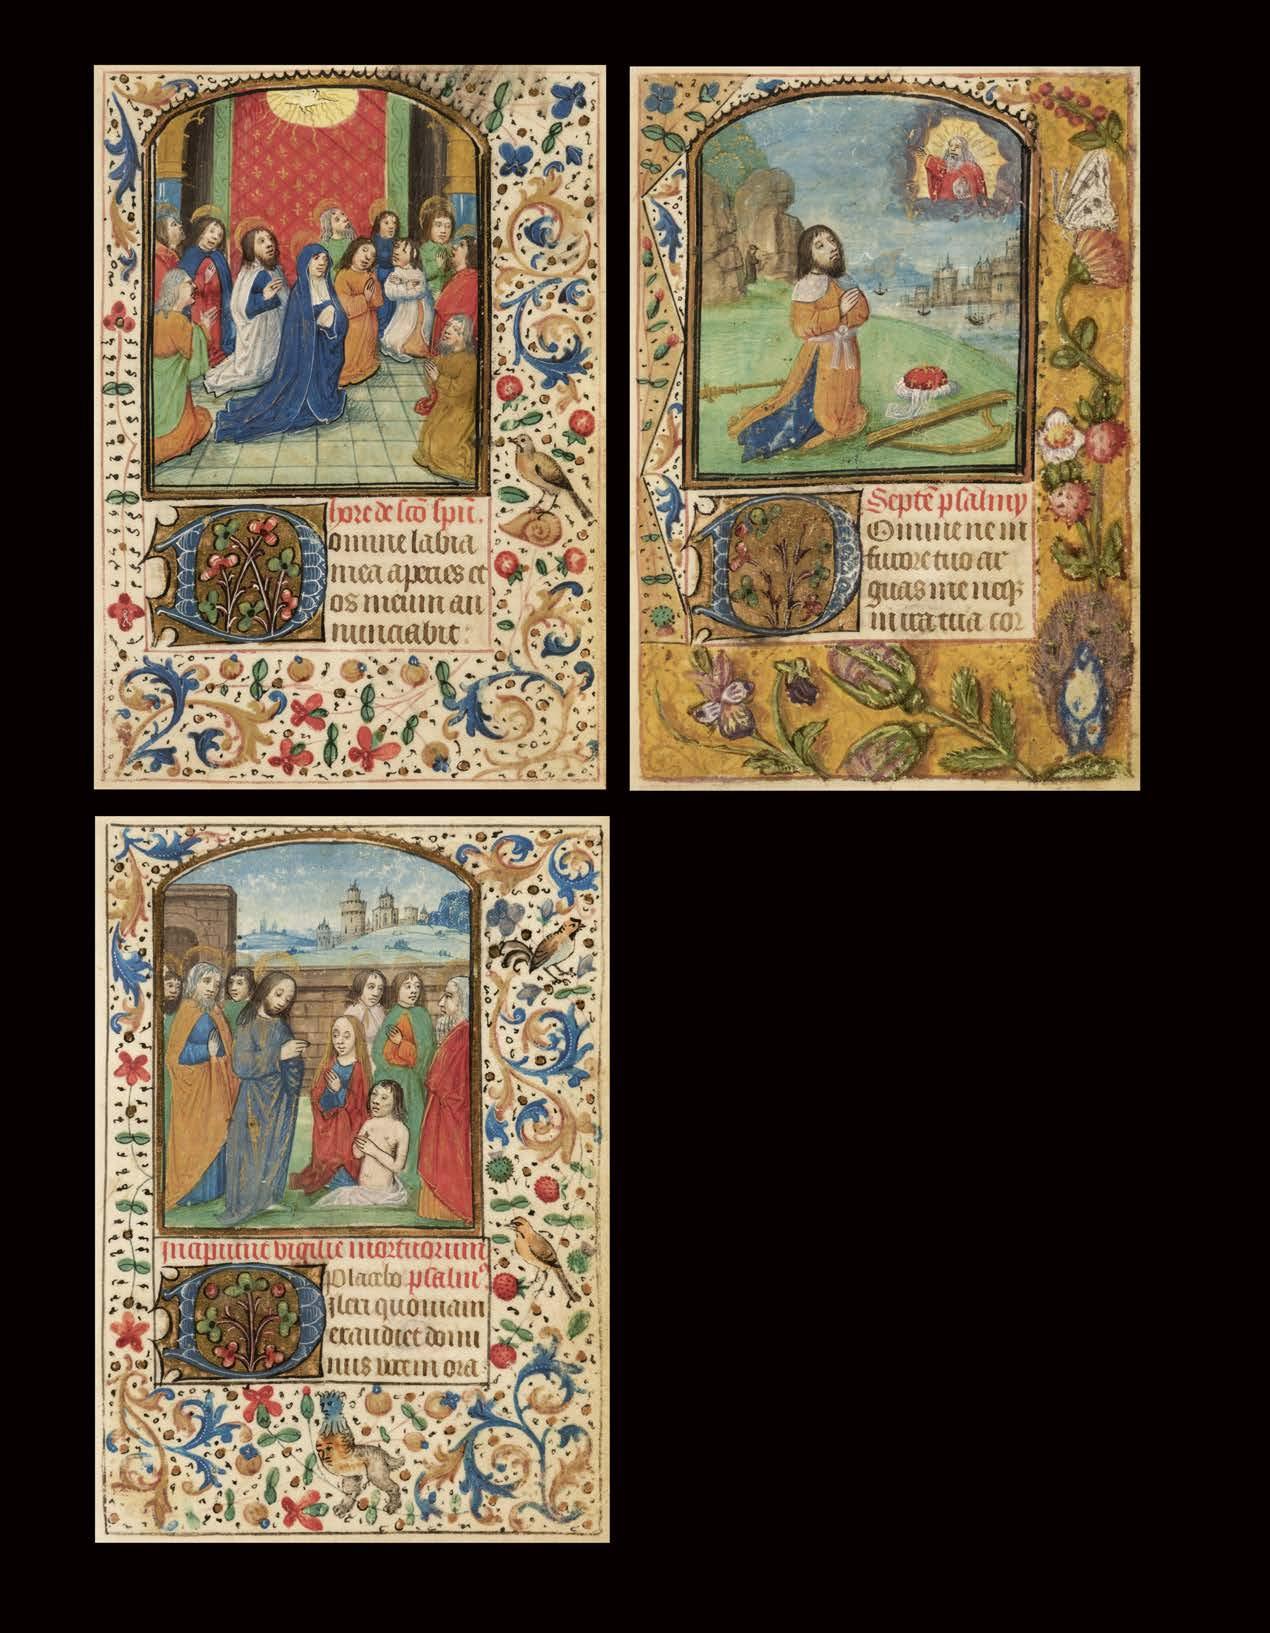 hore de sco spu.
Domine labia
mea aperies et
os meum an
nunciabit:
Septe psalmy
Domine ne in
furore tuo ar
guas me neq
in ira tua cor
Incipiunt vigilie mortuorum
Placebo psalm
Dilexi quoniam
exaudiet domi
nus vocem ora